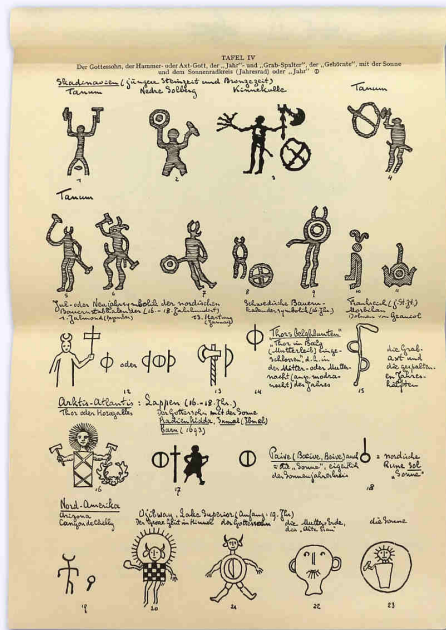 TAFEL IV
Der Gottessohn, der Hammer- oder Axt-Gott, der „Jahr"- und „Grab-Spalter", der „Gehörnte", mit der Sonne
und dem Sonnenradkreis (Jahresrad) oder „Jahr" ⦶
Skadinavien (jüngere Steinzeit und Bronzezeit)
Tanum Nedre Solberg Kinnekulle Tanum
1 2 3 4
Tanum
5 6 7 8 9 10 11
Jul- oder Neujahrsymbolik der nordischen
Bauernstabkalender (16.-18. Jahrhundert)
13. Hartung
(Januar)
Schwedische Bauern-
kalendersymbolik (16. Jh.)
Frankreich (j. St. Zt.)
Morbihan
oder
12 13 14 15
„Thors Bælgblunten"
„Thor im Balg
(Mutterleib) einge-
schlossen", d.h. in
der Mitter- oder Mutter-
nacht
des Jahres
die Grab-
axt und
die gespalte-
nen Jahres-
hälften
Arktis-Atlantis: Lappen (16.-18. Jh.)
Thor oder Horagalles Der Gottessohn mit der Sonne
Radien Kidda,
(1693)
Paive (Baeive, Beive) and
= die „Sonne", eigentlich
= nordische
Rune sol
„Sonne"
16 17 18
Nord-Amerika
Arizona
Canyon de Chelly
Ojibway, Lake Superior (Anfang 19. Jh.)
Der Grosse Geist im Himmel der Gottessohn die Mutter Erde,
die „Alte Frau"
die Sonne
19 20 21 22 23